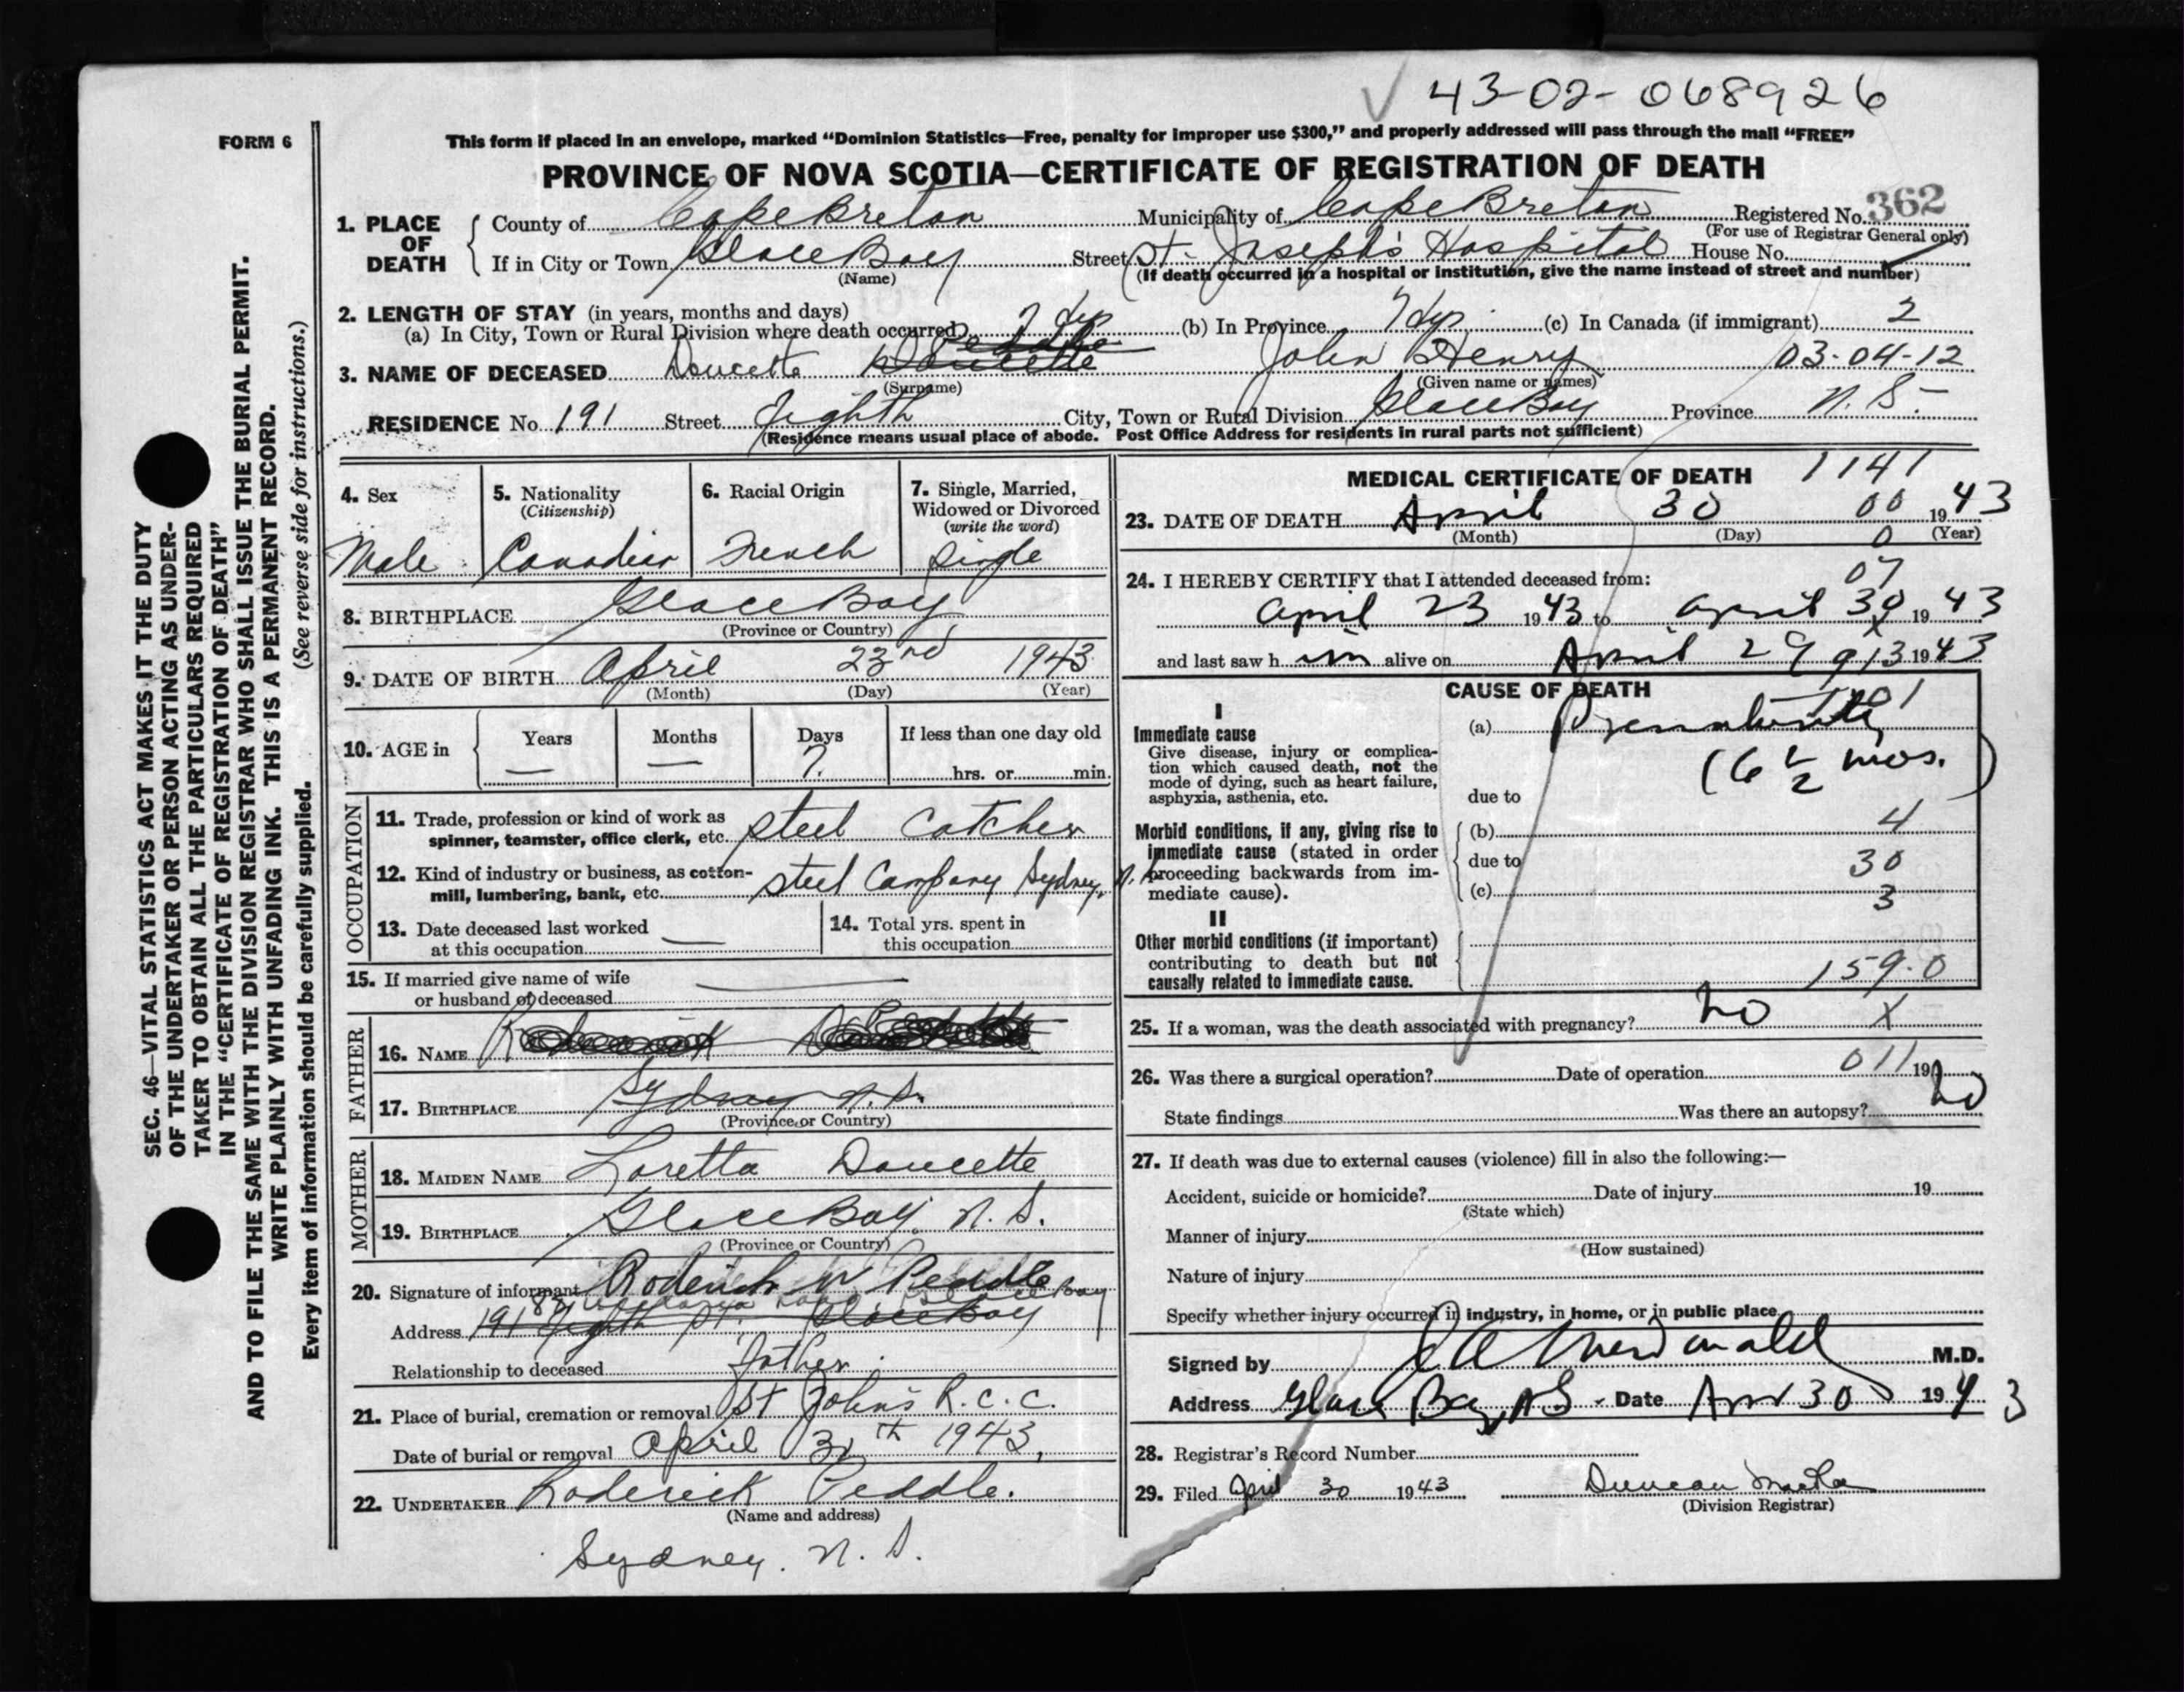 43-02-068926
FORM 6
This form if placed in an envelope, marked "Dominion Statistics—Free, penalty for improper use $300," and properly addressed will pass through the mail "FREE"
PROVINCE OF NOVA SCOTIA—CERTIFICATE OF REGISTRATION OF DEATH
1. PLACE OF DEATH
County of Cape Breton Municipality of Cape Breton Registered No. 362
(For use of Registrar General only)
If in City or Town Glace Bay Street St. Joseph's Hospital House No.
(Name) (If death occurred in a hospital or institution, give the name instead of street and number)
2. LENGTH OF STAY (in years, months and days)
(a) In City, Town or Rural Division where death occurred 7 dys (b) In Province 7 dys (c) In Canada (if immigrant) 2
3. NAME OF DECEASED Doucette Peddle Doucette John Henry 03-04-12
(Surname) (Given name or names)
RESIDENCE No. 191 Street Eighth City, Town or Rural Division Glace Bay Province N. S.
(Residence means usual place of abode. Post Office Address for residents in rural parts not sufficient)
SEC. 46—VITAL STATISTICS ACT MAKES IT THE DUTY
OF THE UNDERTAKER OR PERSON ACTING AS UNDER-
TAKER TO OBTAIN ALL THE PARTICULARS REQUIRED
IN THE "CERTIFICATE OF REGISTRATION OF DEATH"
AND TO FILE THE SAME WITH THE DIVISION REGISTRAR WHO SHALL ISSUE THE BURIAL PERMIT.
WRITE PLAINLY WITH UNFADING INK. THIS IS A PERMANENT RECORD.
Every item of information should be carefully supplied. (See reverse side for instructions.)
4. Sex
Male
5. Nationality
(Citizenship)
Canadian
6. Racial Origin
French
7. Single, Married,
Widowed or Divorced
(write the word)
Single
8. BIRTHPLACE Glace Bay
(Province or Country)
9. DATE OF BIRTH April 23rd 1943
(Month) (Day) (Year)
10. AGE in
Years Months Days If less than one day old
— — 7. hrs. or min.
OCCUPATION
11. Trade, profession or kind of work as
spinner, teamster, office clerk, etc. Steel Catcher
12. Kind of industry or business, as cotton-
mill, lumbering, bank, etc. Steel Company Sydney, N.S.
13. Date deceased last worked
at this occupation —
14. Total yrs. spent in
this occupation
15. If married give name of wife
or husband of deceased —
FATHER
16. NAME
17. BIRTHPLACE Sydney N.S.
(Province or Country)
MOTHER
18. MAIDEN NAME Loretta Doucette
19. BIRTHPLACE Glace Bay, N. S.
(Province or Country)
20. Signature of informant Roderick W Peddle
Address 191 Eighth St. Glace Bay
Relationship to deceased Father
21. Place of burial, cremation or removal St John's R. C. C.
Date of burial or removal April 30th 1943,
22. UNDERTAKER Roderick Peddle.
(Name and address)
Sydney. N. S.
MEDICAL CERTIFICATE OF DEATH 1141
23. DATE OF DEATH April 30 00 1943
(Month) (Day) 0 (Year)
24. I HEREBY CERTIFY that I attended deceased from: 07
April 23 1943 to April 30 1943
X
and last saw him alive on April 29 913 1943
CAUSE OF DEATH
I
Immediate cause
Give disease, injury or complica-
tion which caused death, not the
mode of dying, such as heart failure,
asphyxia, asthenia, etc.
(a) Prematurity
(6 1/2 mos.)
due to
Morbid conditions, if any, giving rise to
immediate cause (stated in order
proceeding backwards from im-
mediate cause).
(b) 4
due to 30
(c) 3
II
Other morbid conditions (if important)
contributing to death but not
causally related to immediate cause.
159.0
25. If a woman, was the death associated with pregnancy? no X
26. Was there a surgical operation? Date of operation 011 19
State findings Was there an autopsy? no
27. If death was due to external causes (violence) fill in also the following:—
Accident, suicide or homicide? Date of injury 19
(State which)
Manner of injury
(How sustained)
Nature of injury
Specify whether injury occurred in industry, in home, or in public place
Signed by M.D.
Address Glace Bay, NS Date Apr 30 1943
28. Registrar's Record Number
29. Filed April 30 1943 Duncan
(Division Registrar)